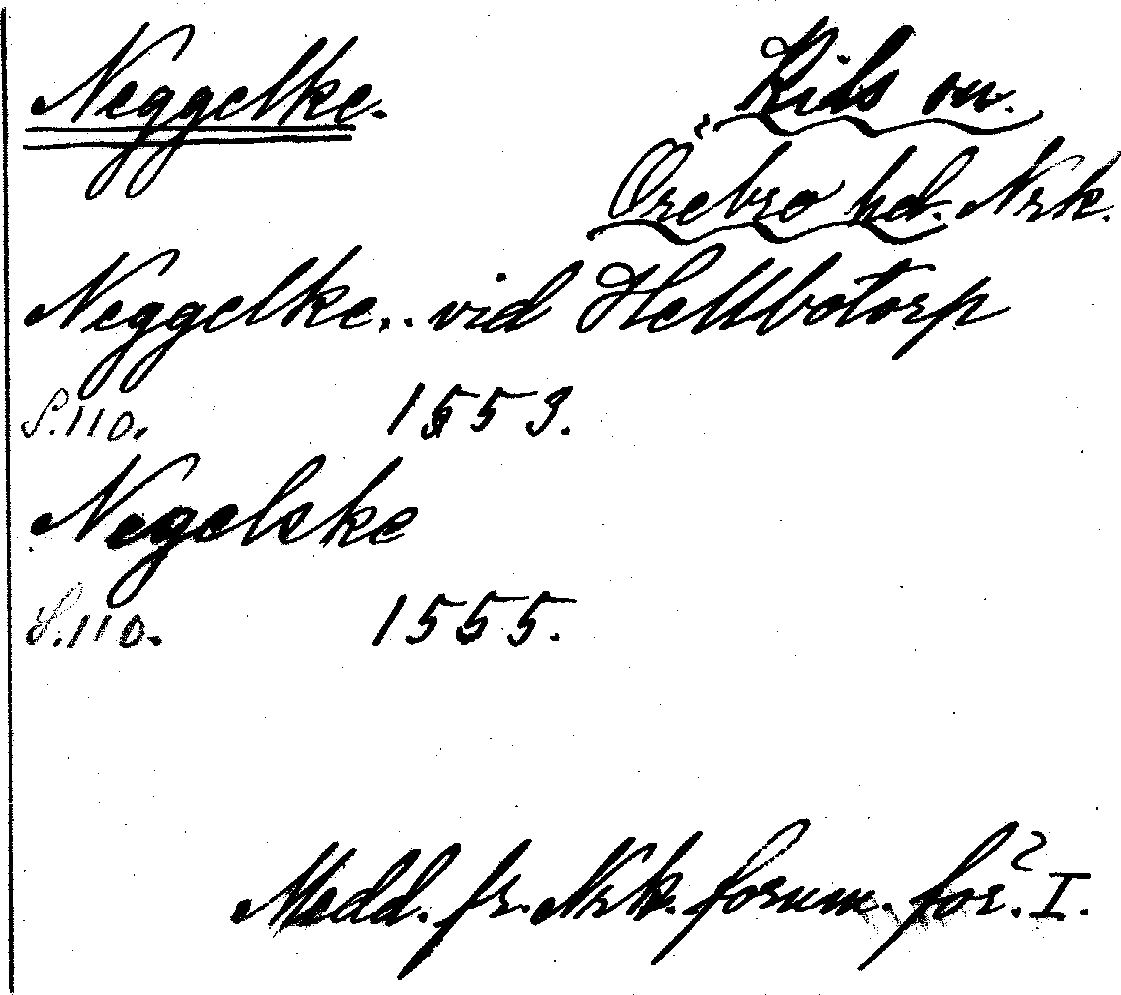 Neggelke.
Kils sn.
Örebro hd. Nrk.
Neggelke... vid Hellbotorp
S.110. 1553.
Negelske
S.110. 1555.
Medd. fr. Nrk. fornm. för. I.